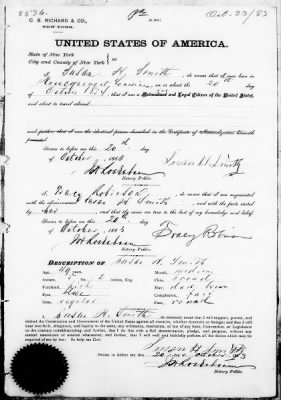 8536.
Oct. 23/83
C. B. RICHARD & CO.,
NEW YORK.
UNITED STATES OF AMERICA.
State of New York
City and County of New York } ss
I, Susan H. Smith, do swear that I was born in
on or about the 20 day
of October; that I am a and Legal Citizen of the United States,
and about to travel abroad
Sworn to before me this 20th day
of October 1883
Susan H. Smith
Notary Public.
I, Tracy Robinson, do swear that I am acquainted
with the above named Susan H Smith, and with the facts stated
by her, and that the same are true to the best of my knowledge and belief.
Sworn to before me this 20th day
of October, 1883
Tracy Robinson
Notary Public.
DESCRIPTION OF Susan H. Smith
Age, 49 years
Mouth, medium
Stature, 5 2 inches, Eng.
Chin, round
Forehead, high
Hair, dark brown
Eyes, blue
Complexion, fair
Nose, regular
Face, round
I, Susan H. Smith, do solemnly swear that I will support, protect, and
defend the Constitution and Government of the United States against all enemies, whether domestic or foreign; and that I will
bear true faith, allegiance, and loyalty to the same, any ordinance, resolution, or law of any State, Convention, or Legislature
to the contrary notwithstanding; and further, that I do this with a full determination, pledge, and purpose, without any
mental reservation or evasion whatsoever; and further, that I will well and faithfully perform all the duties which may be
required of me by law: So help me God.
Susan H. Smith
Sworn to before me this 20th October 1883
Notary Public.